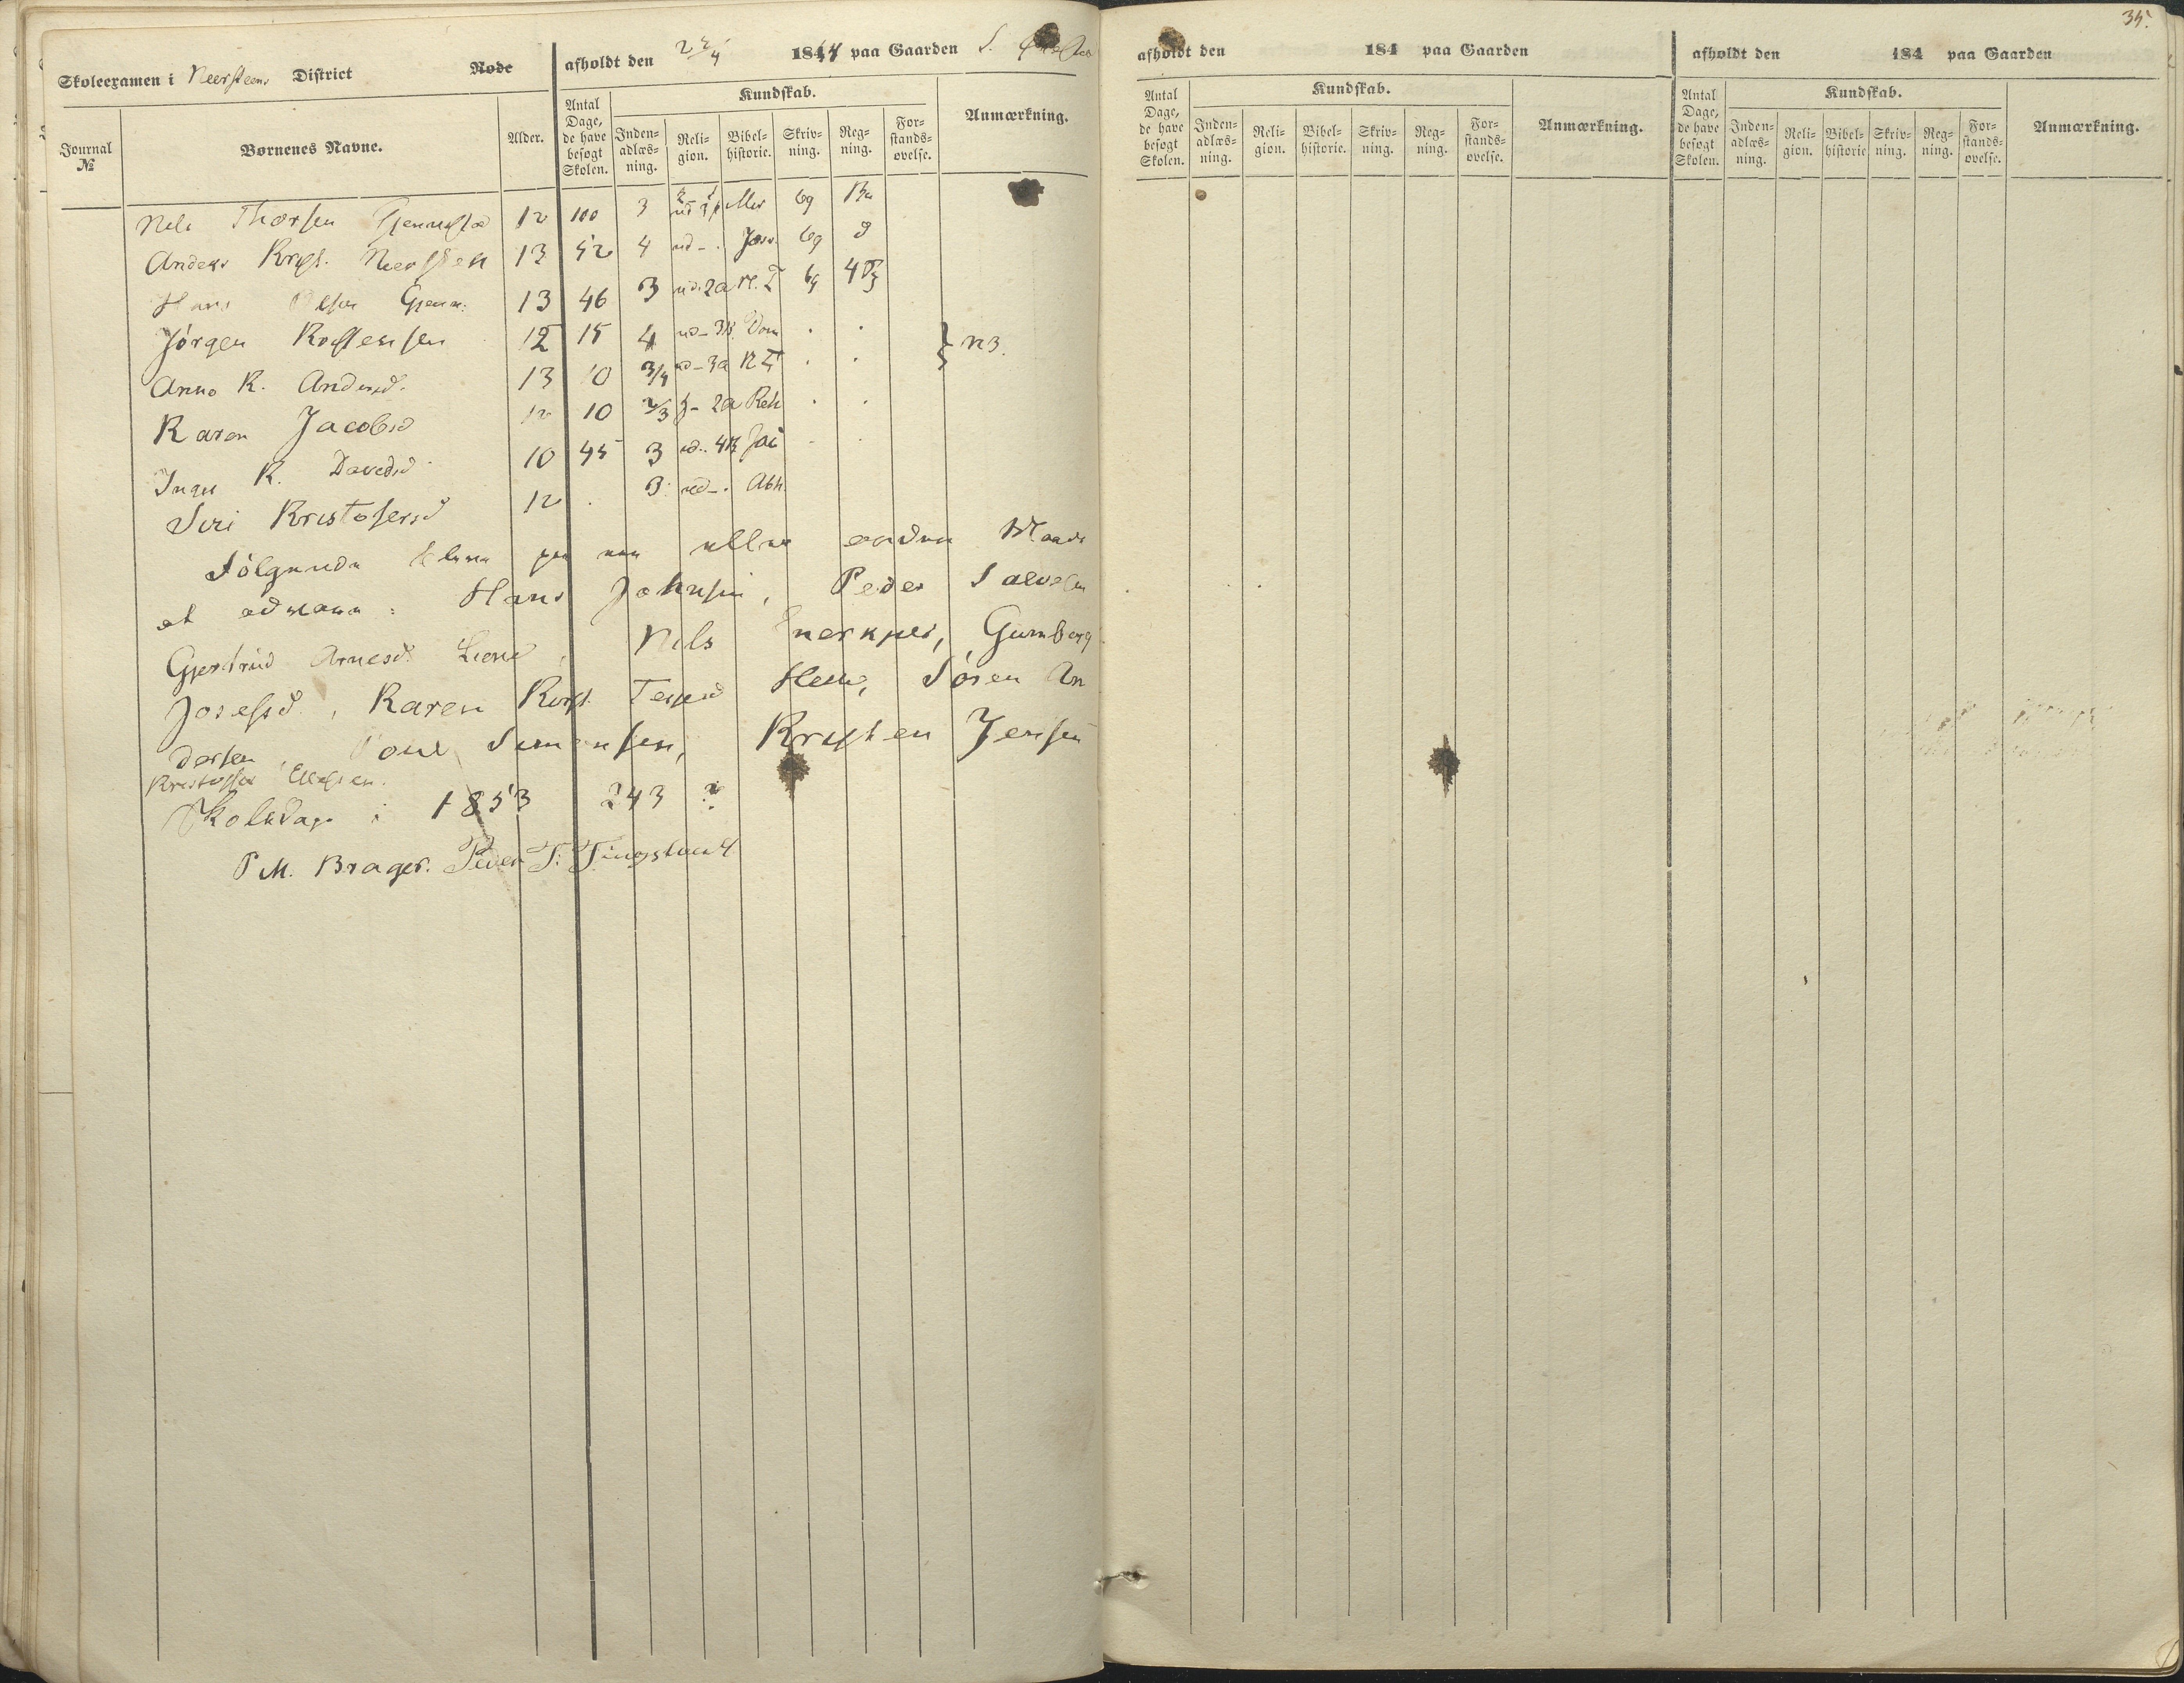 Skoleexamen i Neersteens District Rode afholdt den 2 1844 paa Gaarden S.
Journal № Børnenes Navne. Alder. Antal Dage, de have besøgt Skolen. Kundskab. Inden-adlæs-ning. Reli-gion. Bibel-historie. Skriv-ning. Reg-ning. For-stands-øvelse. Anmærkning.
Nels Thorsen 12 100 3 6g
Anders Krist. Neersten 13 52 4 ud - . Josv. 6g
Hans Olsen Gjenn. 13 46 3 ud. 2a N. T 6g 4
Jørgen 12 15 4 ud - 3B Dom . .
Anne K. Andersd. 13 10 3/4 ud - 3a N T . . } N3.
Karen Jacobsd 12 10 2/3 - 2a Reh . .
Inger K. Davedsd 10 45 3 ud.. 4B Jac . .
Siri Kristofersd 12 . 3 ud - . Abh.
Følgende paa een eller anden Maade
at : Hans Johnsen, Peder Salvesen
Gjertrud Arnesd. Liene, Nels Gunborg
Josefsd, Karen Kirst. Hem, Søren An
dersen, Poul Simonsen, Kristen Jensen
Kristoffer Ellefsen.
Skoledage i 1853 243 ?
P M. Brager. Peder T. Tingstveit
35.
afholdt den 184 paa Gaarden
Antal Dage, de have besøgt Skolen. Kundskab. Inden-adlæs-ning. Reli-gion. Bibel-historie. Skriv-ning. Reg-ning. For-stands-øvelse. Anmærkning.
afholdt den 184 paa Gaarden
Antal Dage, de have besøgt Skolen. Kundskab. Inden-adlæs-ning. Reli-gion. Bibel-historie Skriv-ning. Reg-ning. For-stands-øvelse. Anmærkning.